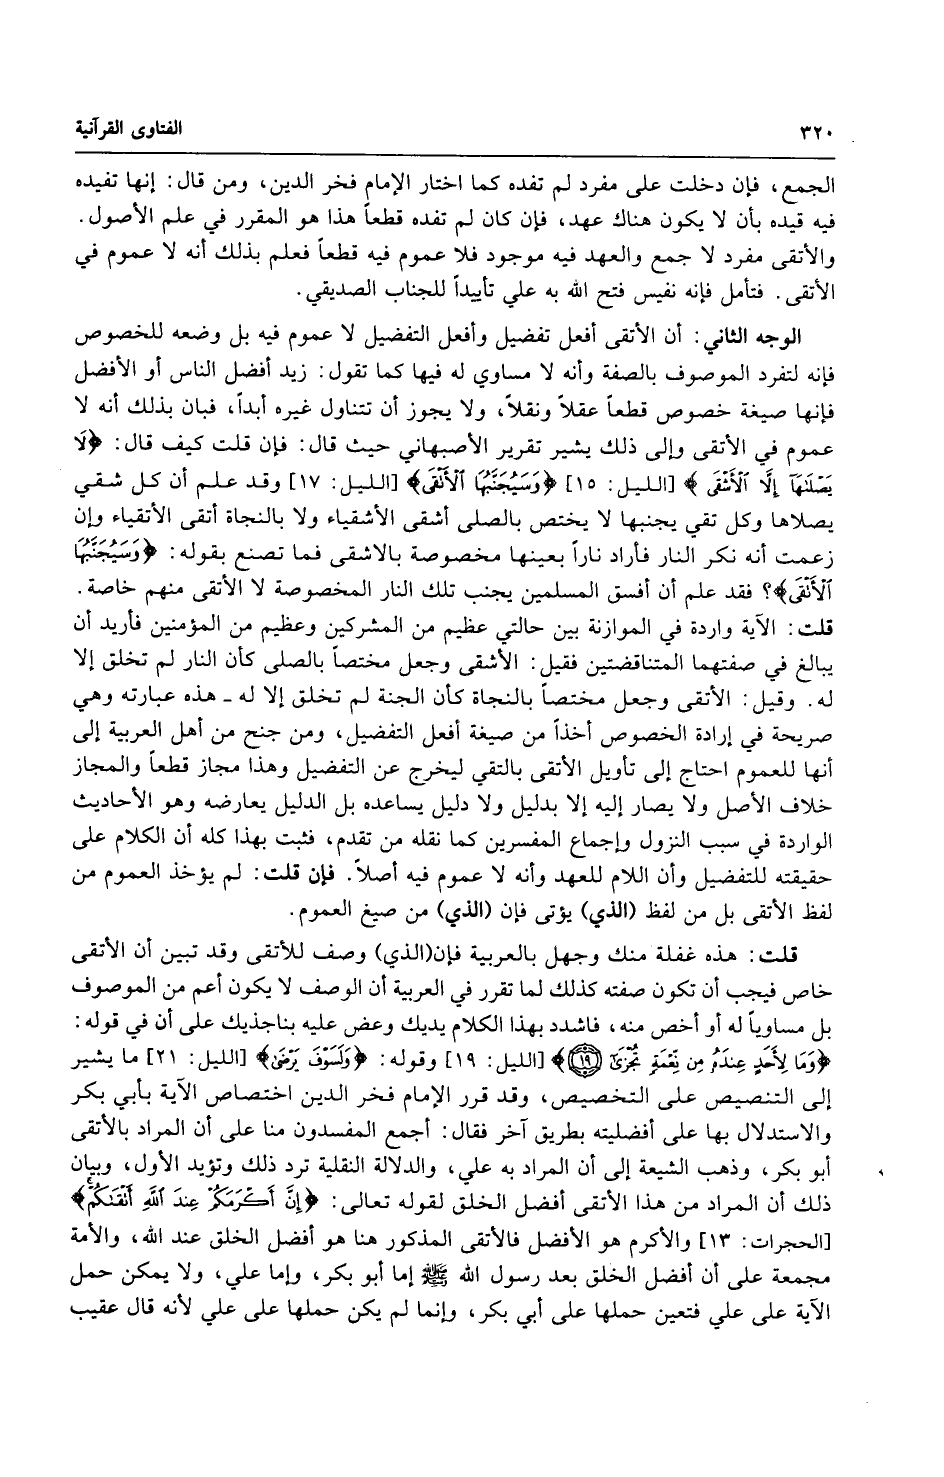 ٣٢٠ الفتاوى القرآنية
الجمع، فإن دخلت على مفرد لم تفده كما اختار الإمام فخر الدين، ومن قال: إنها تفيده
فيه قيده بأن لا يكون هناك عهد، فإن كان لم تفده قطعاً هذا هو المقرر في علم الأصول.
والأتقى مفرد لا جمع والعهد فيه موجود فلا عموم فيه قطعاً فعلم بذلك أنه لا عموم في
الأتقى. فتأمل فإنه نفيس فتح الله به علي تأييداً للجناب الصديقي.
الوجه الثاني: أن الأتقى أفعل تفضيل وأفعل التفضيل لا عموم فيه بل وضعه للخصوص
فإنه لتفرد الموصوف بالصفة وأنه لا مساوي له فيها كما تقول: زيد أفضل الناس أو الأفضل
فإنها صيغة خصوص قطعاً عقلاً ونقلاً، ولا يجوز أن تتناول غيره أبداً، فبان بذلك أنه لا
عموم في الأتقى وإلى ذلك يشير تقرير الأصبهاني حيث قال: فإن قلت كيف قال: ﴿لَا
يَصْلَىٰهَآ إِلَّا ٱلْأَشْقَى ﴾ [الليل: ١٥] ﴿وَسَيُجَنَّبُهَا ٱلْأَتْقَى﴾ [الليل: ١٧] وقد علم أن كل شقي
يصلاها وكل تقي يجنبها لا يختص بالصلى أشقى الأشقياء ولا بالنجاة أتقى الأتقياء وإن
زعمت أنه نكر النار فأراد ناراً بعينها مخصوصة بالاشقى فما تصنع بقوله: ﴿وَسَيُجَنَّبُهَا
ٱلْأَتْقَى﴾؟ فقد علم أن أفسق المسلمين يجنب تلك النار المخصوصة لا الأتقى منهم خاصة.
قلت: الآية واردة في الموازنة بين حالتي عظيم من المشركين وعظيم من المؤمنين فأريد أن
يبالغ في صفتهما المتناقضتين فقيل: الأشقى وجعل مختصاً بالصلى كأن النار لم تخلق إلا
له. وقيل: الأتقى وجعل مختصاً بالنجاة كأن الجنة لم تخلق إلا له ـ هذه عبارته وهي
صريحة في إرادة الخصوص أخذاً من صيغة أفعل التفضيل، ومن جنح من أهل العربية إلى
أنها للعموم احتاج إلى تأويل الأتقى بالتقي ليخرج عن التفضيل وهذا مجاز قطعاً والمجاز
خلاف الأصل ولا يصار إليه إلا بدليل ولا دليل يساعده بل الدليل يعارضه وهو الأحاديث
الواردة في سبب النزول وإجماع المفسرين كما نقله من تقدم، فثبت بهذا كله أن الكلام على
حقيقته للتفضيل وأن اللام للعهد وأنه لا عموم فيه أصلاً. فإن قلت: لم يؤخذ العموم من
لفظ الأتقى بل من لفظ (الذي) يؤتى فإن (الذي) من صيغ العموم.
قلت: هذه غفلة منك وجهل بالعربية فإن(الذي) وصف للأتقى وقد تبين أن الأتقى
خاص فيجب أن تكون صفته كذلك لما تقرر في العربية أن الوصف لا يكون أعم من الموصوف
بل مساوياً له أو أخص منه، فاشدد بهذا الكلام يديك وعض عليه بناجذيك على أن في قوله:
﴿وَمَا لِأَحَدٍ عِندَهُۥ مِن نِّعْمَةٍ تُجْزَىٰٓ ١٩﴾ [الليل: ١٩] وقوله: ﴿وَلَسَوْفَ يَرْضَىٰ﴾ [الليل: ٢١] ما يشير
إلى التنصيص على التخصيص، وقد قرر الإمام فخر الدين اختصاص الآية بأبي بكر
والاستدلال بها على أفضليته بطريق آخر فقال: أجمع المفسدون منا على أن المراد بالأتقى
أبو بكر، وذهب الشيعة إلى أن المراد به علي، والدلالة النقلية ترد ذلك وتؤيد الأول، وبيان
ذلك أن المراد من هذا الأتقى أفضل الخلق لقوله تعالى: ﴿إِنَّ أَكْرَمَكُمْ عِندَ ٱللَّهِ أَتْقَىٰكُمْ﴾
[الحجرات: ١٣] والأكرم هو الأفضل فالأتقى المذكور هنا هو أفضل الخلق عند الله، والأمة
مجمعة على أن أفضل الخلق بعد رسول الله ﷺ إما أبو بكر، وإما علي، ولا يمكن حمل
الآية على علي فتعين حملها على أبي بكر، وإنما لم يكن حملها على علي لأنه قال عقيب